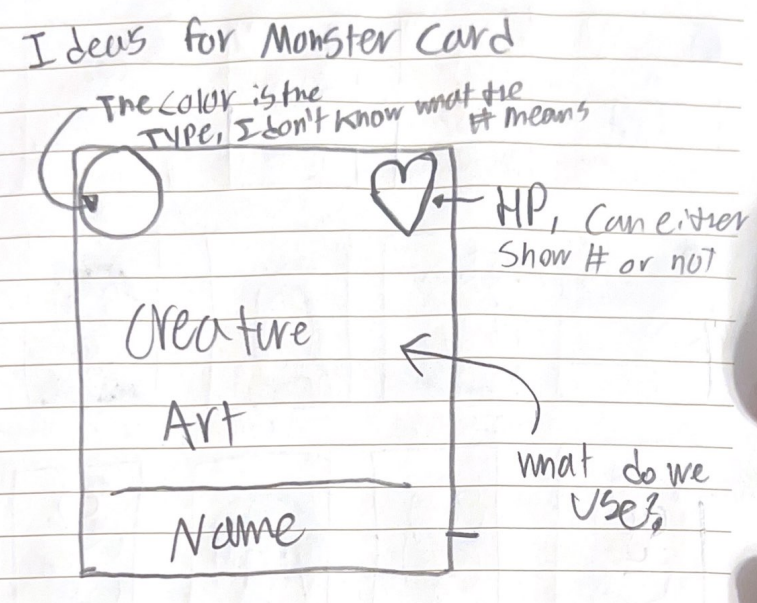 Ideas for Monster Card
The color is the
TYPE, I don't know what the
# means
HP, Can either
Show # or not
Creature
Art
what do we
use?
Name